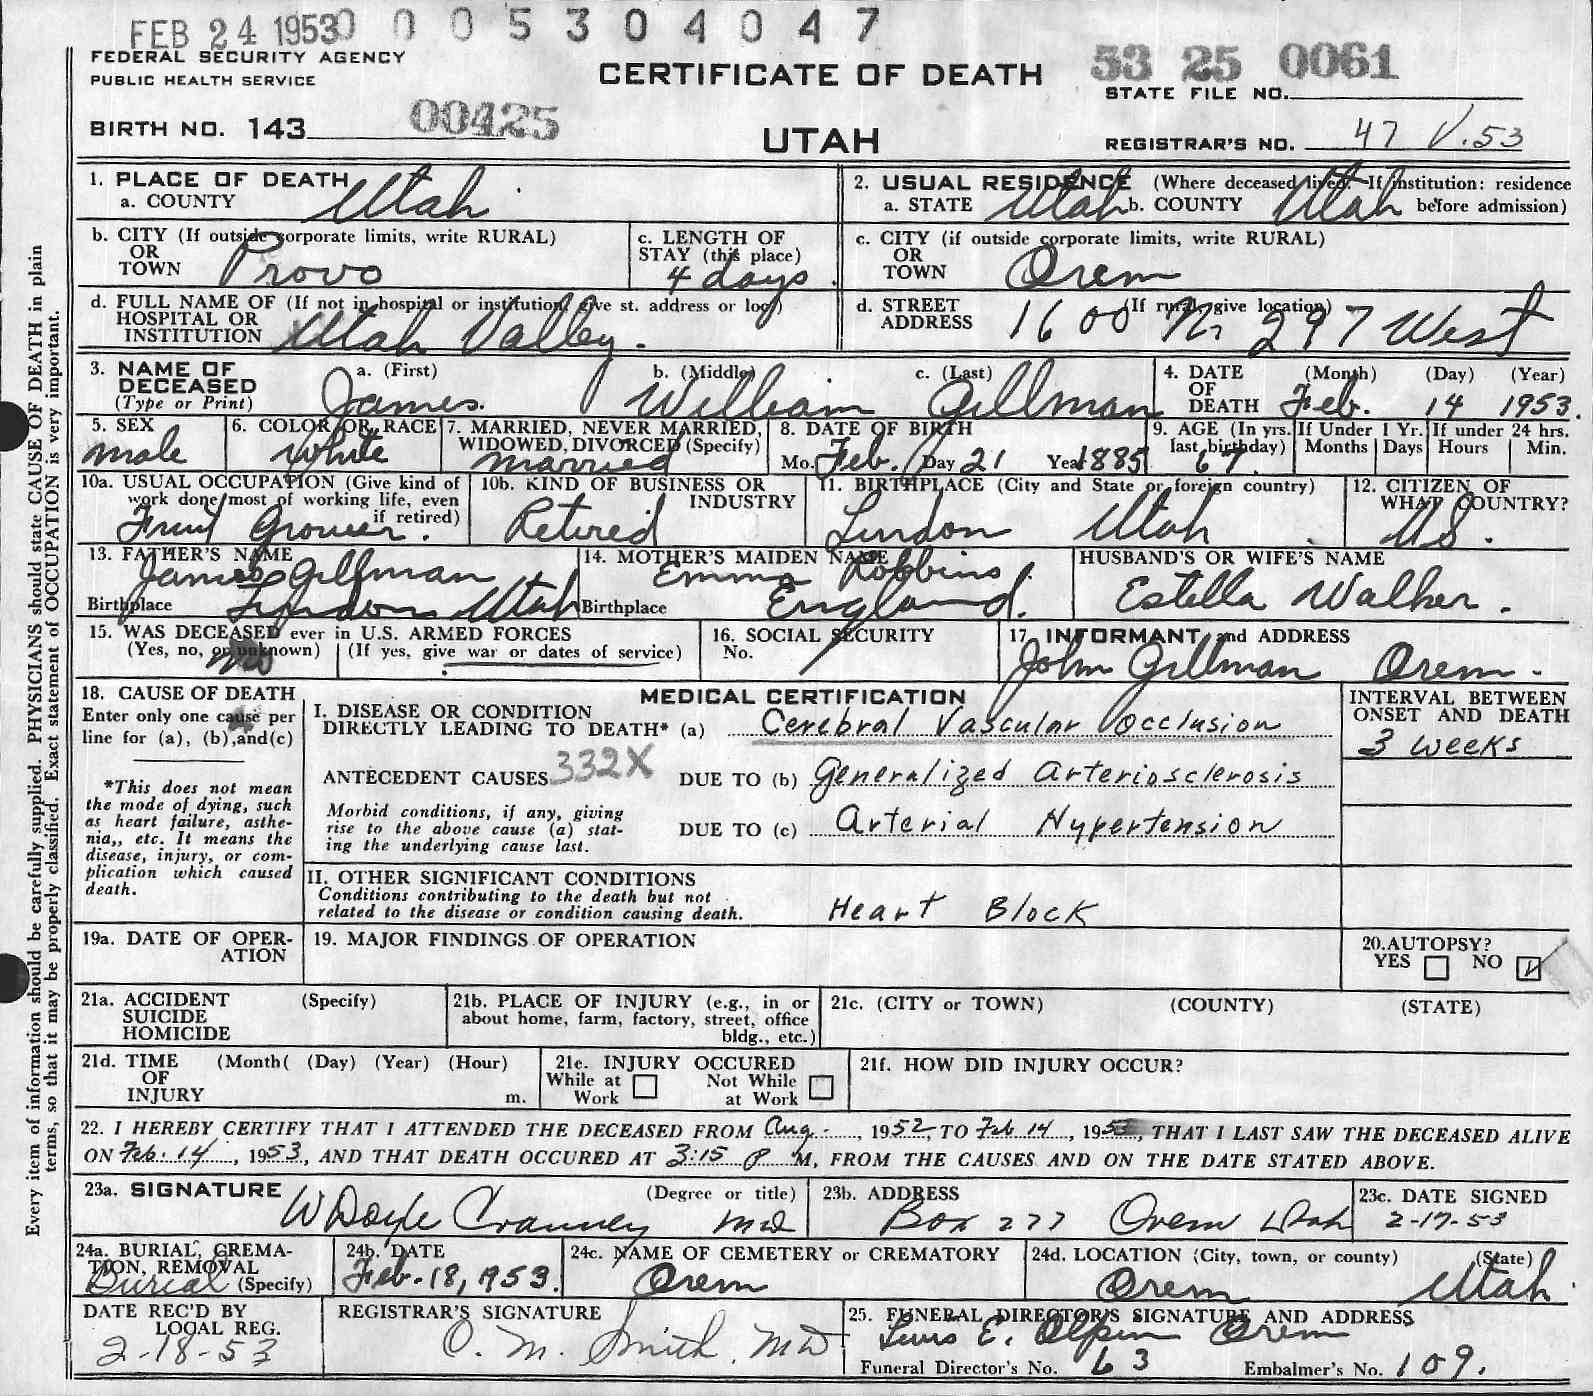 FEB 24 1953 0 0 0 5 3 0 4 0 4 7
FEDERAL SECURITY AGENCY
PUBLIC HEALTH SERVICE
CERTIFICATE OF DEATH
53 25 0061
STATE FILE NO.
BIRTH NO. 143 00425
UTAH
REGISTRAR'S NO. 47 V.53
1. PLACE OF DEATH
a. COUNTY Utah
2. USUAL RESIDENCE (Where deceased lived. If institution: residence
a. STATE Utah b. COUNTY Utah before admission)
b. CITY (If outside corporate limits, write RURAL)
OR
TOWN Provo
c. LENGTH OF
STAY (this place)
4 days
c. CITY (if outside corporate limits, write RURAL)
OR
TOWN Orem
d. FULL NAME OF (If not in hospital or institution, give st. address or loc)
HOSPITAL OR
INSTITUTION Utah Valley.
d. STREET (If rural, give location)
ADDRESS 1600 N. 297 West
3. NAME OF
DECEASED
(Type or Print)
a. (First) b. (Middle) c. (Last)
James William Gillman
4. DATE (Month) (Day) (Year)
OF
DEATH Feb. 14 1953.
5. SEX
male
6. COLOR OR RACE
White
7. MARRIED, NEVER MARRIED,
WIDOWED, DIVORCED (Specify)
married
8. DATE OF BIRTH
Mo. Feb. Day 21 Year 1885
9. AGE (In yrs.
last birthday)
67
If Under 1 Yr.
Months Days
If under 24 hrs.
Hours Min.
10a. USUAL OCCUPATION (Give kind of
work done most of working life, even
if retired)
Fruit Grower.
10b. KIND OF BUSINESS OR
INDUSTRY
Retired
11. BIRTHPLACE (City and State or foreign country)
Lindon Utah
12. CITIZEN OF
WHAT COUNTRY?
US.
13. FATHER'S NAME
James Gillman
Birthplace Lyndon Utah
14. MOTHER'S MAIDEN NAME
Emma Robbins
Birthplace England.
HUSBAND'S OR WIFE'S NAME
Estella Walker.
15. WAS DECEASED ever in U.S. ARMED FORCES
(Yes, no, or unknown) (If yes, give war or dates of service)
No
16. SOCIAL SECURITY
No.
17. INFORMANT and ADDRESS
John Gillman Orem.
18. CAUSE OF DEATH
Enter only one cause per
line for (a), (b), and (c)
*This does not mean
the mode of dying, such
as heart failure, asthe-
nia,, etc. It means the
disease, injury, or com-
plication which caused
death.
MEDICAL CERTIFICATION
I. DISEASE OR CONDITION
DIRECTLY LEADING TO DEATH* (a) Cerebral Vascular Occlusion
ANTECEDENT CAUSES 332X DUE TO (b) Generalized Arteriosclerosis
Morbid conditions, if any, giving
rise to the above cause (a) stat-
ing the underlying cause last.
DUE TO (c) Arterial Hypertension
INTERVAL BETWEEN
ONSET AND DEATH
3 weeks
II. OTHER SIGNIFICANT CONDITIONS
Conditions contributing to the death but not
related to the disease or condition causing death.
Heart Block
19a. DATE OF OPER-
ATION
19. MAJOR FINDINGS OF OPERATION
20. AUTOPSY?
YES NO
21a. ACCIDENT (Specify)
SUICIDE
HOMICIDE
21b. PLACE OF INJURY (e.g., in or
about home, farm, factory, street, office
bldg., etc.)
21c. (CITY or TOWN) (COUNTY) (STATE)
21d. TIME (Month( (Day) (Year) (Hour)
OF
INJURY m.
21e. INJURY OCCURED
While at Not While
Work at Work
21f. HOW DID INJURY OCCUR?
22. I HEREBY CERTIFY THAT I ATTENDED THE DECEASED FROM Aug., 1952, TO Feb 14, 1953, THAT I LAST SAW THE DECEASED ALIVE
ON Feb. 14, 1953, AND THAT DEATH OCCURED AT 3:15 P M, FROM THE CAUSES AND ON THE DATE STATED ABOVE.
23a. SIGNATURE (Degree or title)
W Doyle Cranney MD
23b. ADDRESS
Box 277 Orem Utah
23c. DATE SIGNED
2-17-53
24a. BURIAL, CREMA-
TION, REMOVAL
Burial (Specify)
24b. DATE
Feb. 18, 1953.
24c. NAME OF CEMETERY or CREMATORY
Orem
24d. LOCATION (City, town, or county) (State)
Orem Utah
DATE REC'D BY
LOCAL REG.
2-18-53
REGISTRAR'S SIGNATURE
O. M. Smith, MD
25. FUNERAL DIRECTOR'S SIGNATURE AND ADDRESS
Lewis E. Olpin Orem
Funeral Director's No. 63 Embalmer's No. 109.
Every item of information should be carefully supplied. PHYSICIANS should state CAUSE OF DEATH in plain
terms, so that it may be properly classified. Exact statement of OCCUPATION is very important.